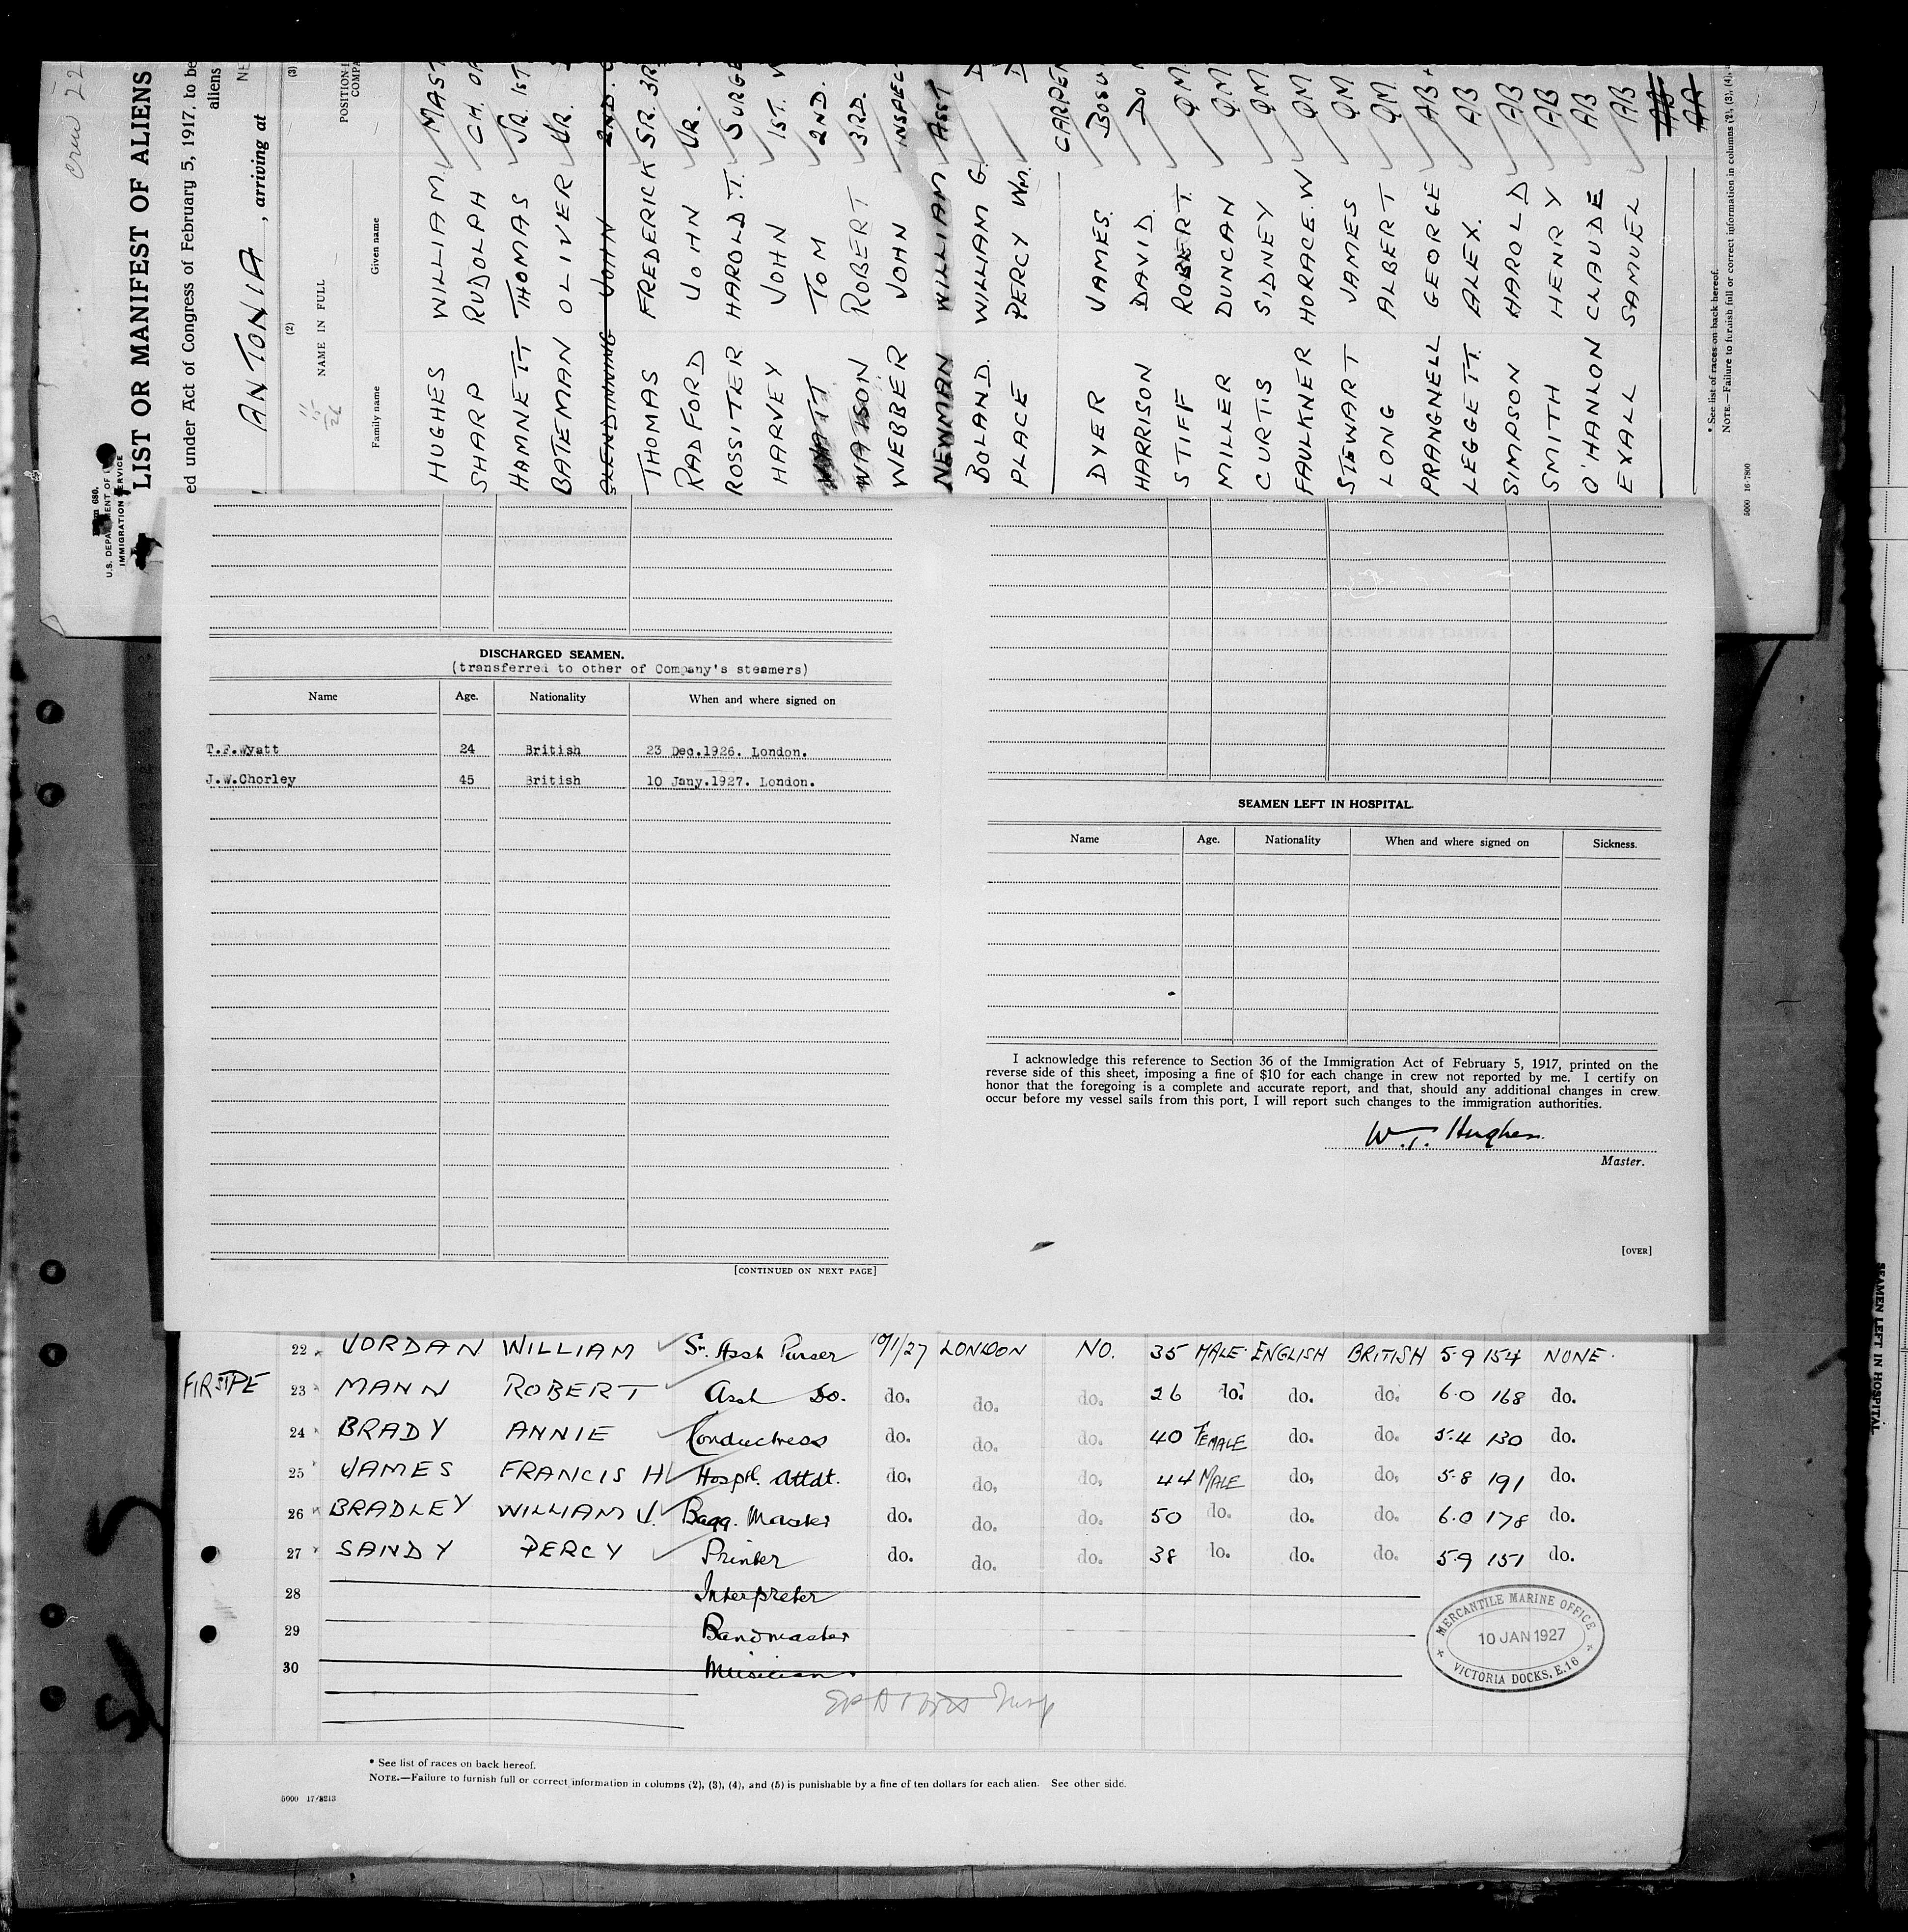 Crew
Form 680.
U.S. DEPARTMENT OF
IMMIGRATION SERVICE
LIST OR MANIFEST OF ALIENS
ed under Act of Congress of February 5, 1917, to be
aliens
ANTONIA, arriving at NE
(2) (3)
NAME IN FULL
POSITION I
COMPA
Family name Given name
HUGHES WILLIAM MAST
SHARP RUDOLPH CH. OF
HAMNETT THOMAS JR. 1ST
BATEMAN OLIVER JR.
JOHN 2ND.
THOMAS FREDERICK SR. 3R
RADFORD JOHN JR.
ROSSITER HAROLD T. SURGE
HARVEY JOHN 1ST.
WYATT TOM 2ND.
WATSON ROBERT 3RD.
WEBBER JOHN INSPEC
NEWMAN WILLIAM ASST
BOLAND. WILLIAM G. D
PLACE PERCY Wm. D
CARPEN
DYER JAMES. BOSU
HARRISON DAVID. DO
STIFF ROBERT. QM
MILLER DUNCAN QM
CURTIS SIDNEY QM
FAULKNER HORACE.W QM
STEWART JAMES QM
LONG ALBERT QM.
PRANGNELL GEORGE AB
LEGGETT. ALEX. AB
SIMPSON HAROLD AB
SMITH HENRY AB
O'HANLON CLAUDE AB
EXALL SAMUEL AB
AB
AB
* See list of races on back hereof.
NOTE.—Failure to furnish full or correct information in columns (2), (3), (4),
5000 16-7800
DISCHARGED SEAMEN.
(transferred to other of Company's steamers)
Name Age. Nationality When and where signed on
T.F.Wyatt 24 British 23 Dec.1926. London.
J.W.Chorley 45 British 10 Jany.1927. London.
[CONTINUED ON NEXT PAGE]
SEAMEN LEFT IN HOSPITAL.
Name Age. Nationality When and where signed on Sickness.
I acknowledge this reference to Section 36 of the Immigration Act of February 5, 1917, printed on the
reverse side of this sheet, imposing a fine of $10 for each change in crew not reported by me. I certify on
honor that the foregoing is a complete and accurate report, and that, should any additional changes in crew
occur before my vessel sails from this port, I will report such changes to the immigration authorities.
W.T. Hughes.
Master.
[OVER]
22 JORDAN WILLIAM Sr. Asst Purser 10/1/27 LONDON NO. 35 MALE ENGLISH BRITISH 5·9 154 NONE.
23 MANN ROBERT Asst Do. do. do. do. 26 do. do. do. 6·0 168 do.
24 BRADY ANNIE Conductress do. do. do. 40 FEMALE do. do. 5·4 130 do.
25 JAMES FRANCIS H Hosptl. Attdt. do. do. do. 44 MALE do. do. 5·8 191 do.
26 BRADLEY WILLIAM J. Bagg. Master do. do. do. 50 do. do. do. 6·0 178 do.
27 SANDY PERCY Printer do. do. do. 38 do. do. do. 5·9 151 do.
28 Interpreter
29 Bandmaster
30 Musician
MERCANTILE MARINE OFFICE
10 JAN 1927
VICTORIA DOCKS, E.16
* See list of races on back hereof.
NOTE.—Failure to furnish full or correct information in columns (2), (3), (4), and (5) is punishable by a fine of ten dollars for each alien. See other side.
5000 17/8213
SEAMEN LEFT IN HOSPITAL.